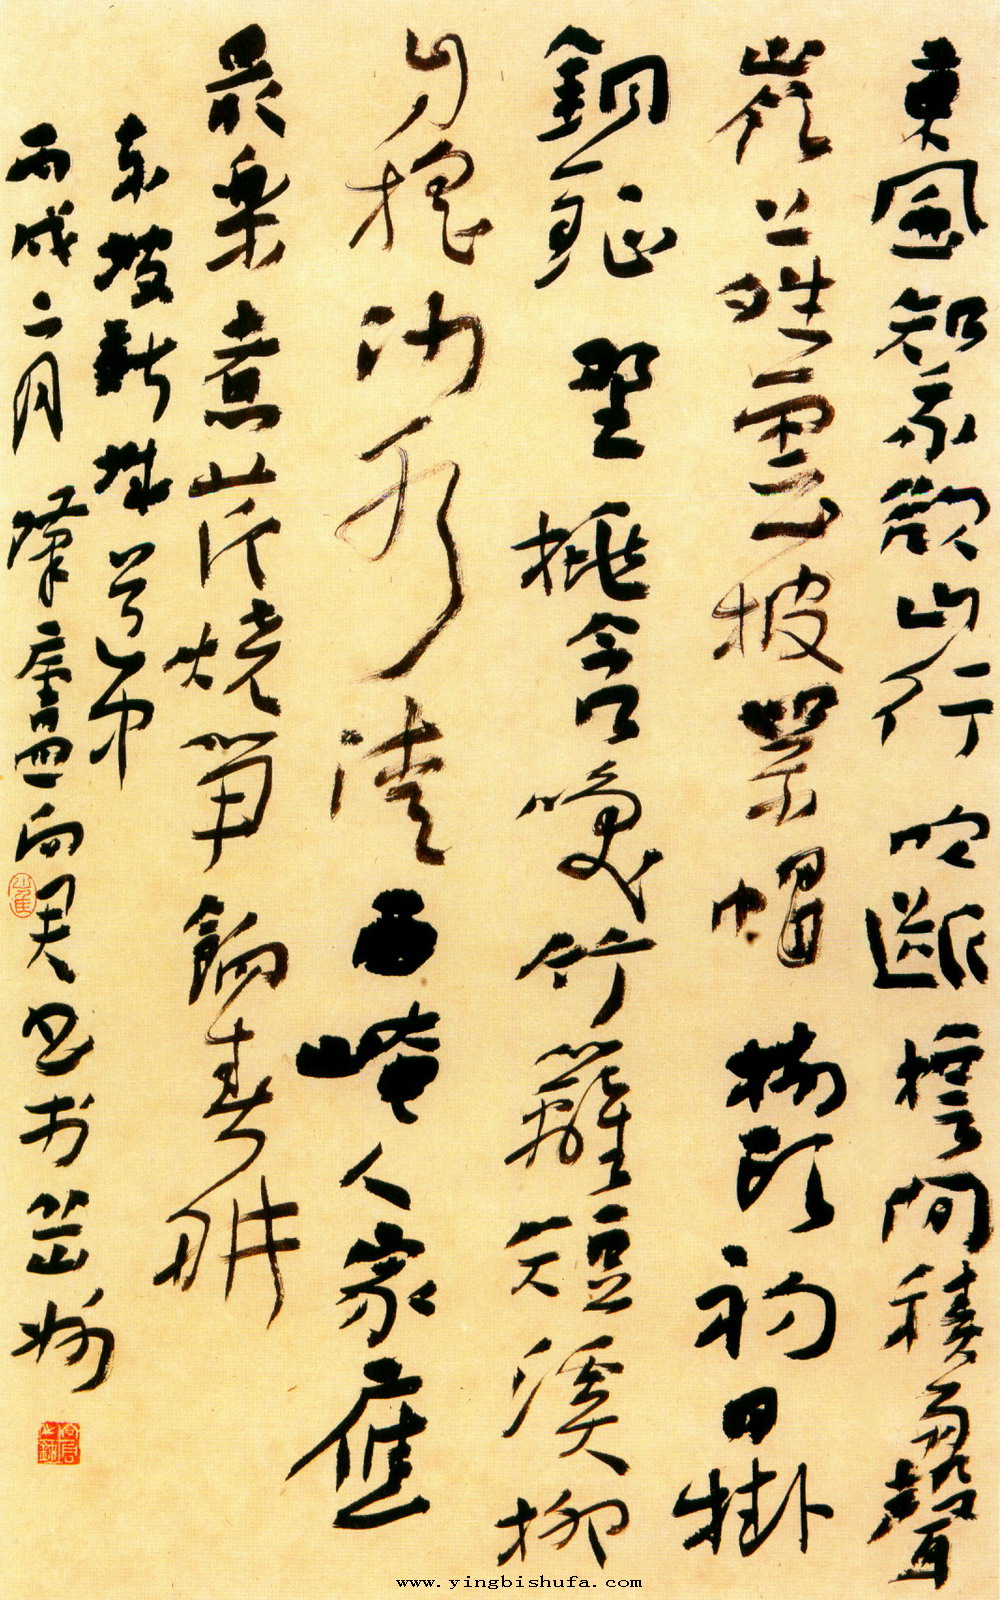 東風知我欲山行吹斷檐間積雨聲
嶺上晴雲披絮帽樹頭初日掛
銅鉦野桃含笑竹籬短溪柳
自搖沙水清西崦人家應
最樂煮芹燒筍餉春耕
东坡新城道中
丙戌二月 书於
www.yingbishufa.com